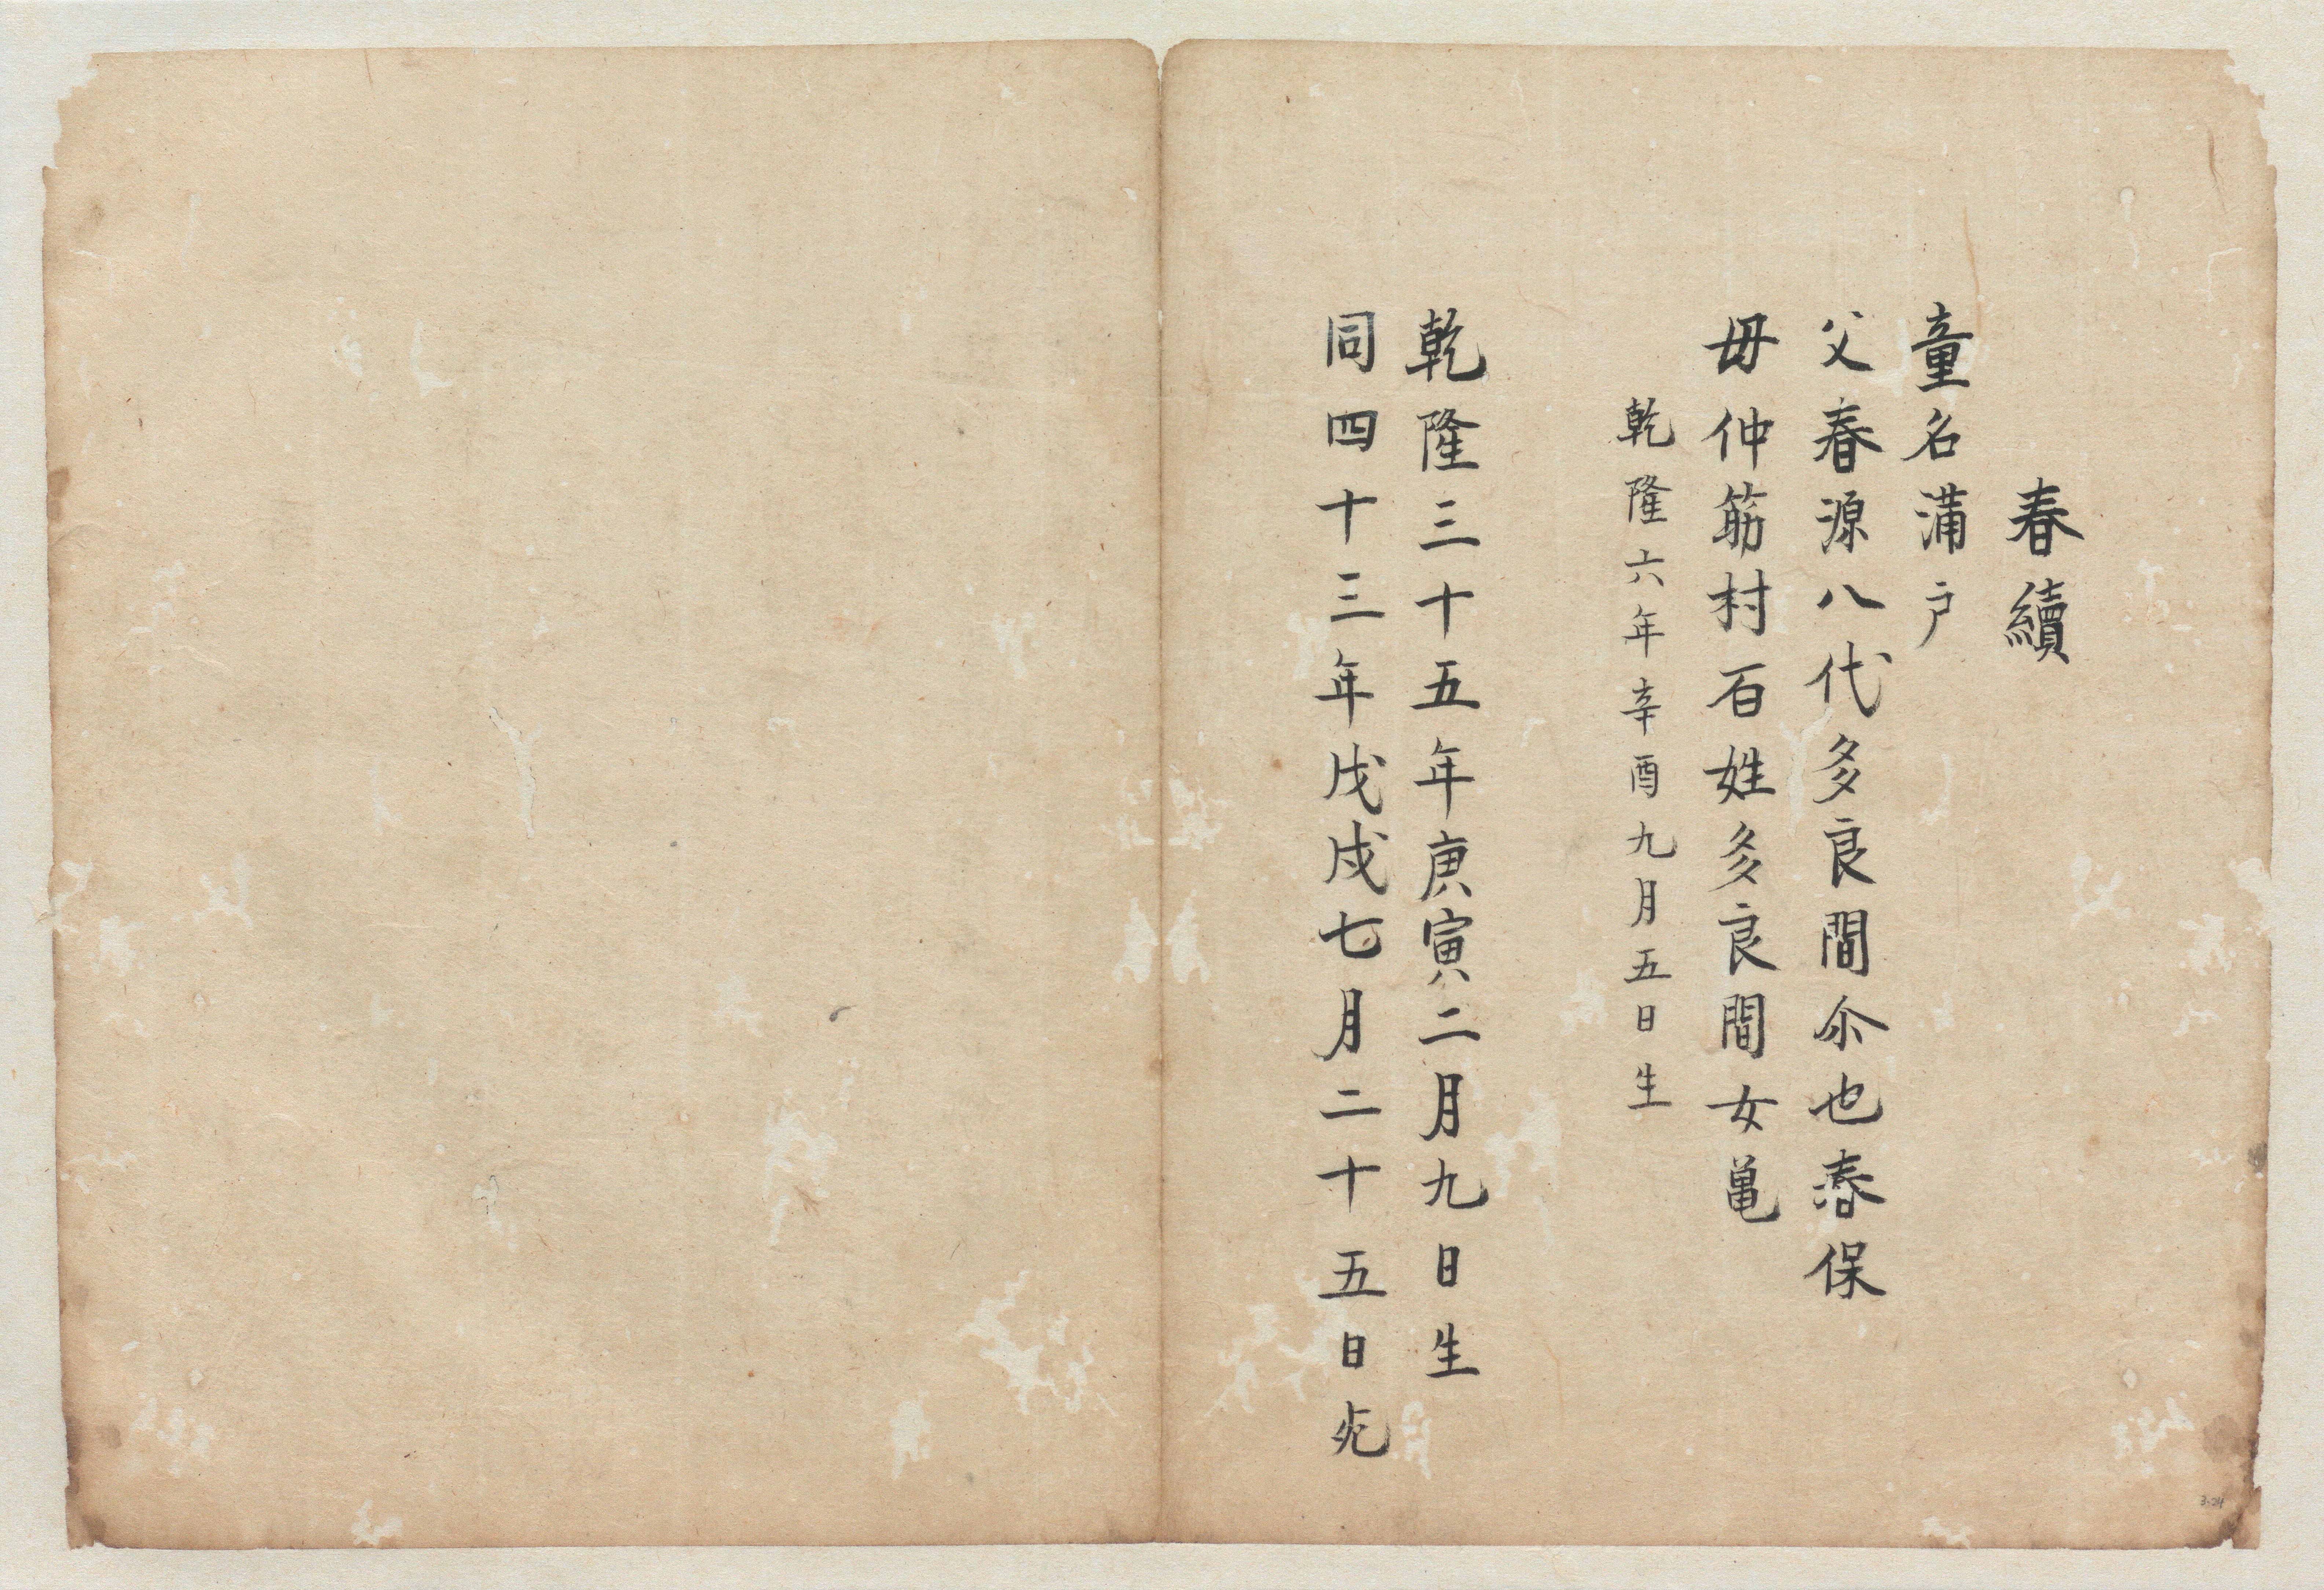 春續
童名蒲戸
父春源八代多良間尒也春保
毋仲筋村百姓多良間女亀
乾隆六年辛酉九月五日生
乾隆三十五年庚寅二月九日生
同四十三年戊戌七月二十五日死
3.24